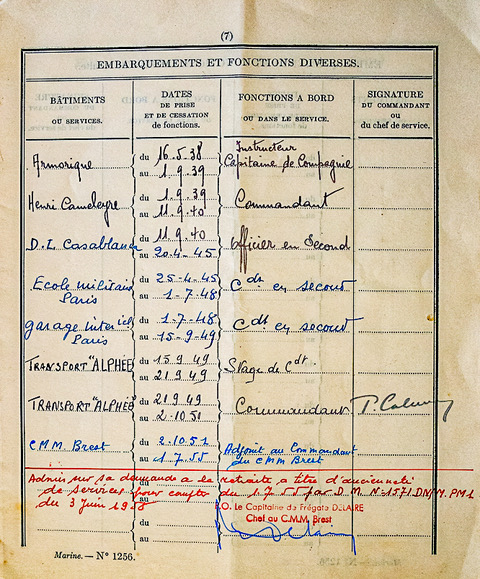 (7)
EMBARQUEMENTS ET FONCTIONS DIVERSES.
BÂTIMENTS
OU SERVICES.
DATES
DE PRISE
ET DE CESSATION
de fonctions.
FONCTIONS A BORD
OU DANS LE SERVICE.
SIGNATURE
DU COMMANDANT
ou
du chef de service.
Armorique
du 16.5.38
au 1.9.39
Instructeur
Capitaine de Compagnie
Henri Cameleyre
du 1.9.39
au 11.9.40
Commandant
D.I. Casablanca
du 11.9.40
au 20-4-45
Officier en Second
Ecole militaire
Paris
du 25-4-45
au 1-7-48
Cdt en second
garage interiel
Paris
du 1-7-48
au 15-9-49
Cdt en second
TRANSPORT "ALPHÉE"
du 15 9 49
au 21 9 49
Stage de Cdt.
TRANSPORT "ALPHÉE"
du 21 9 49
au 2-10 51
Commandant
CMM Brest
du 2.10.51
au 1.7.55
Adjoint au Commandant
du CMM Brest
Admis sur sa demande a la retraite a titre d'ancienneté
de services pour compter du 1.7.55 par D.M. N° 1571 DN/M. PM1
du 3 Juin 1955
P.O. Le Capitaine de Frégate DELAIRE
Chef au C.M.M. Brest
du
au
Marine. — N° 1256.